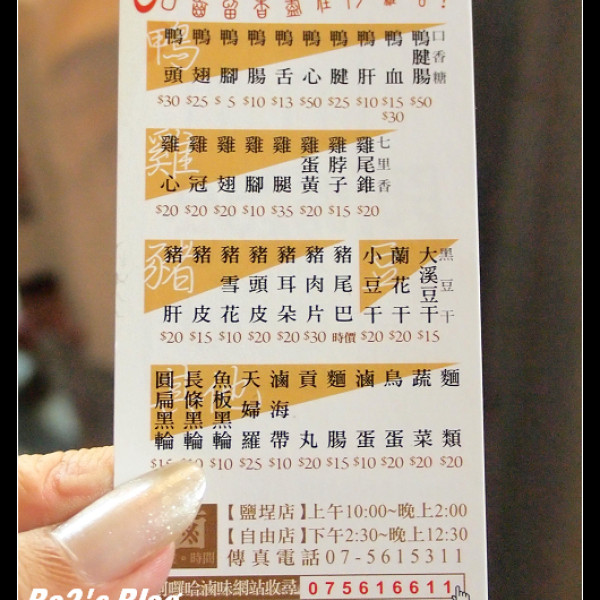 口齒留香盡在
鴨
鴨頭 鴨翅 鴨腳 鴨腸 鴨舌 鴨心 鴨腱 鴨肝 鴨血 鴨腱腸 口香糖
$30 $25 $5 $10 $13 $50 $25 $10 $15 $50
$30
雞
雞心 雞冠 雞翅 雞腳 雞腿 雞蛋黃 雞脖子 雞尾錐 七里香
$20 $20 $20 $10 $35 $20 $15 $20
豬 豆
豬肝 豬皮 豬雪花 豬頭皮 豬耳朵 豬肉片 豬尾巴 小豆干 蘭花干 大溪豆干 黑豆干
$20 $15 $10 $20 $20 $30 時價 $20 $20 $15
其他
圓扁黑輪 長條黑輪 魚板黑輪 天婦羅 滷海帶 貢丸 麵腸 滷蛋 鳥蛋 蔬菜 麵類
$15 $10 $10 $25 $10 $20 $15 $10 $20 $20 $20
【鹽埕店】上午10:00~晚上2:00
【自由店】下午2:30~晚上12:30
時間 傳真電話07-5615311
囉哈滷味網站收尋 075616611